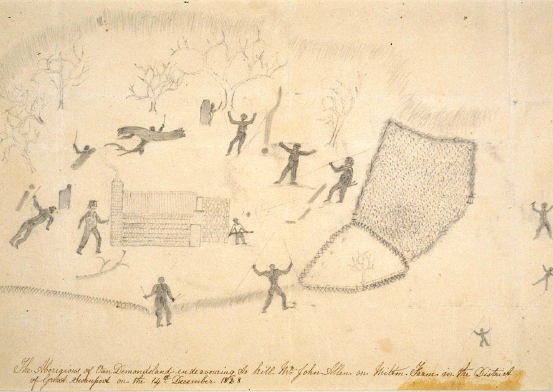 The Aborigines of Van Diemandsland endeavouring to kill Mr John Allen on Milton Farm in the District
of Great Swanport on the 14th December 1828